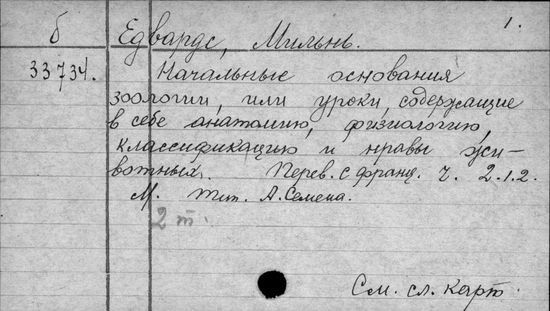 1.
б Едвардс, Мильнь.
33734. Начальные основания
зоологии, или уроки, содержащие
в себе анатомию, физиологию,
классификацию и нравы жи-
вотных. Перев. с франц. Ч. 2.1.2.
М. тип. А. Семена.
2 т.
См. сл. карт.